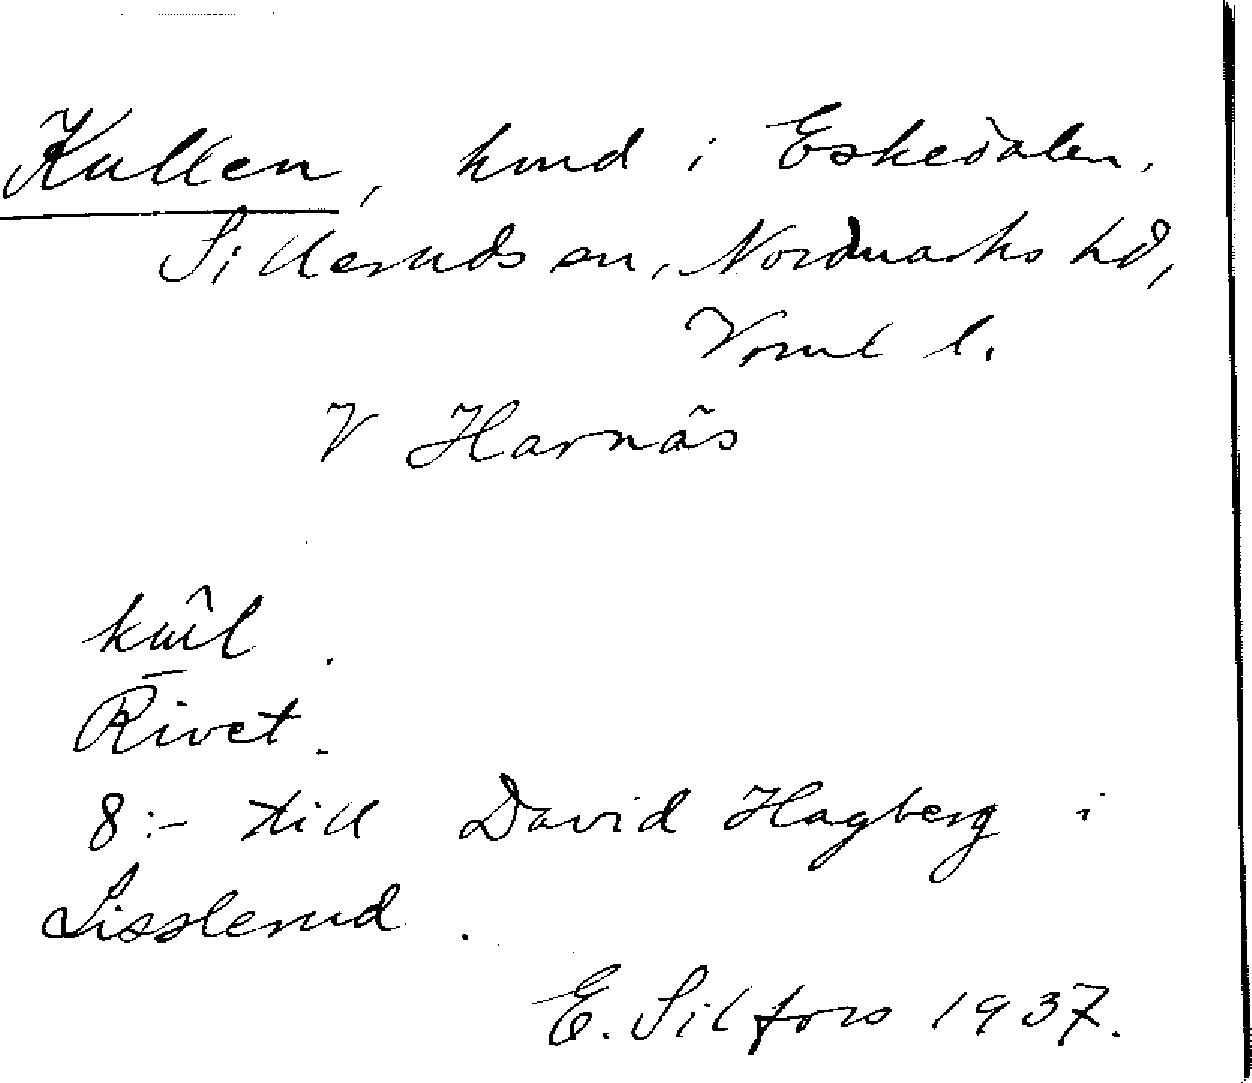 Kullen, hmd i Eskedalen,
Silleruds sn, Nordmarks hd,
Vrml l.
V Harnäs
Rivet.
8:- till David Hagberg i
Lisslerud.
E. Silfors 1937.